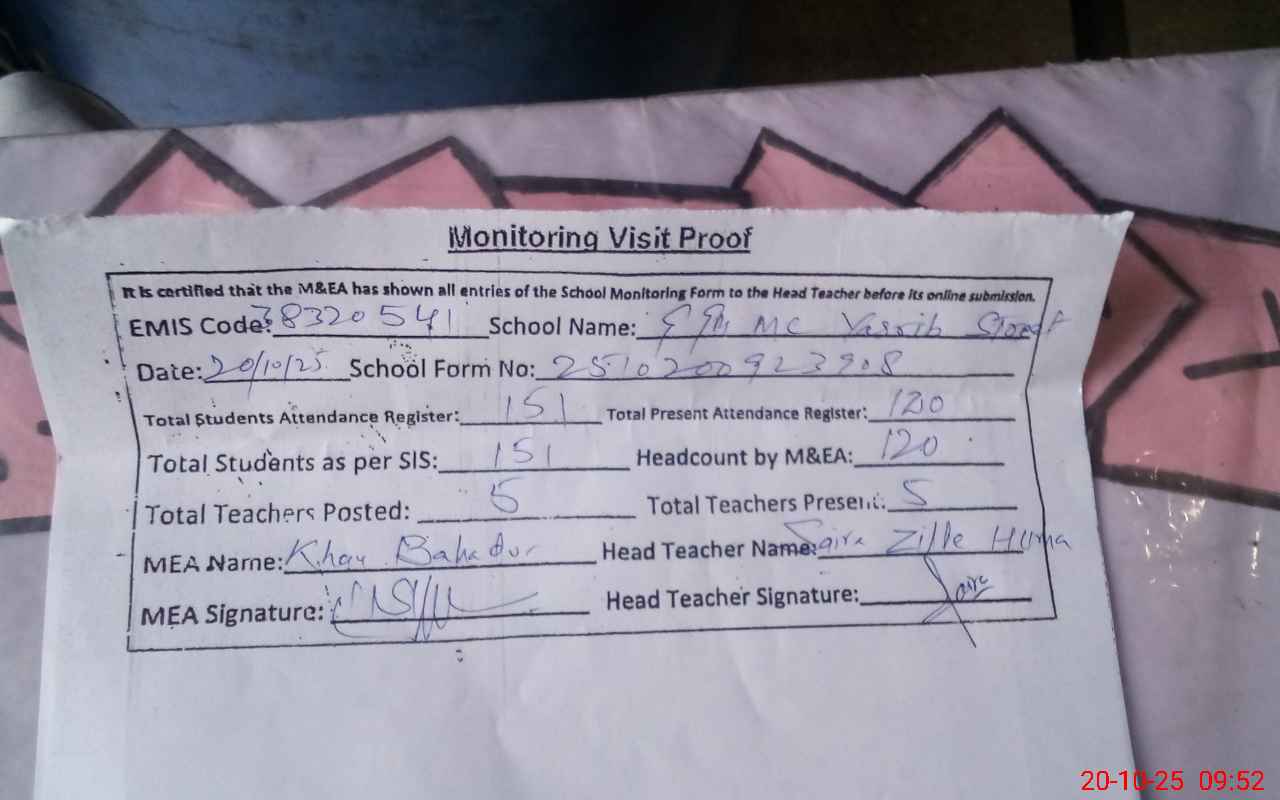 Monitoring Visit Proof
It is certified that the M&EA has shown all entries of the School Monitoring Form to the Head Teacher before its online submission.
EMIS Code: 38320541 School Name: MC Yasrib Street
Date: 20/10/25 School Form No: 2510200923908
Total Students Attendance Register: 151 Total Present Attendance Register: 120
Total Students as per SIS: 151 Headcount by M&EA: 120
Total Teachers Posted: 5 Total Teachers Present: 5
MEA Name: Khan Bahadur Head Teacher Name: Saira Zille Huma
MEA Signature: Head Teacher Signature: Saira
20-10-25 09:52